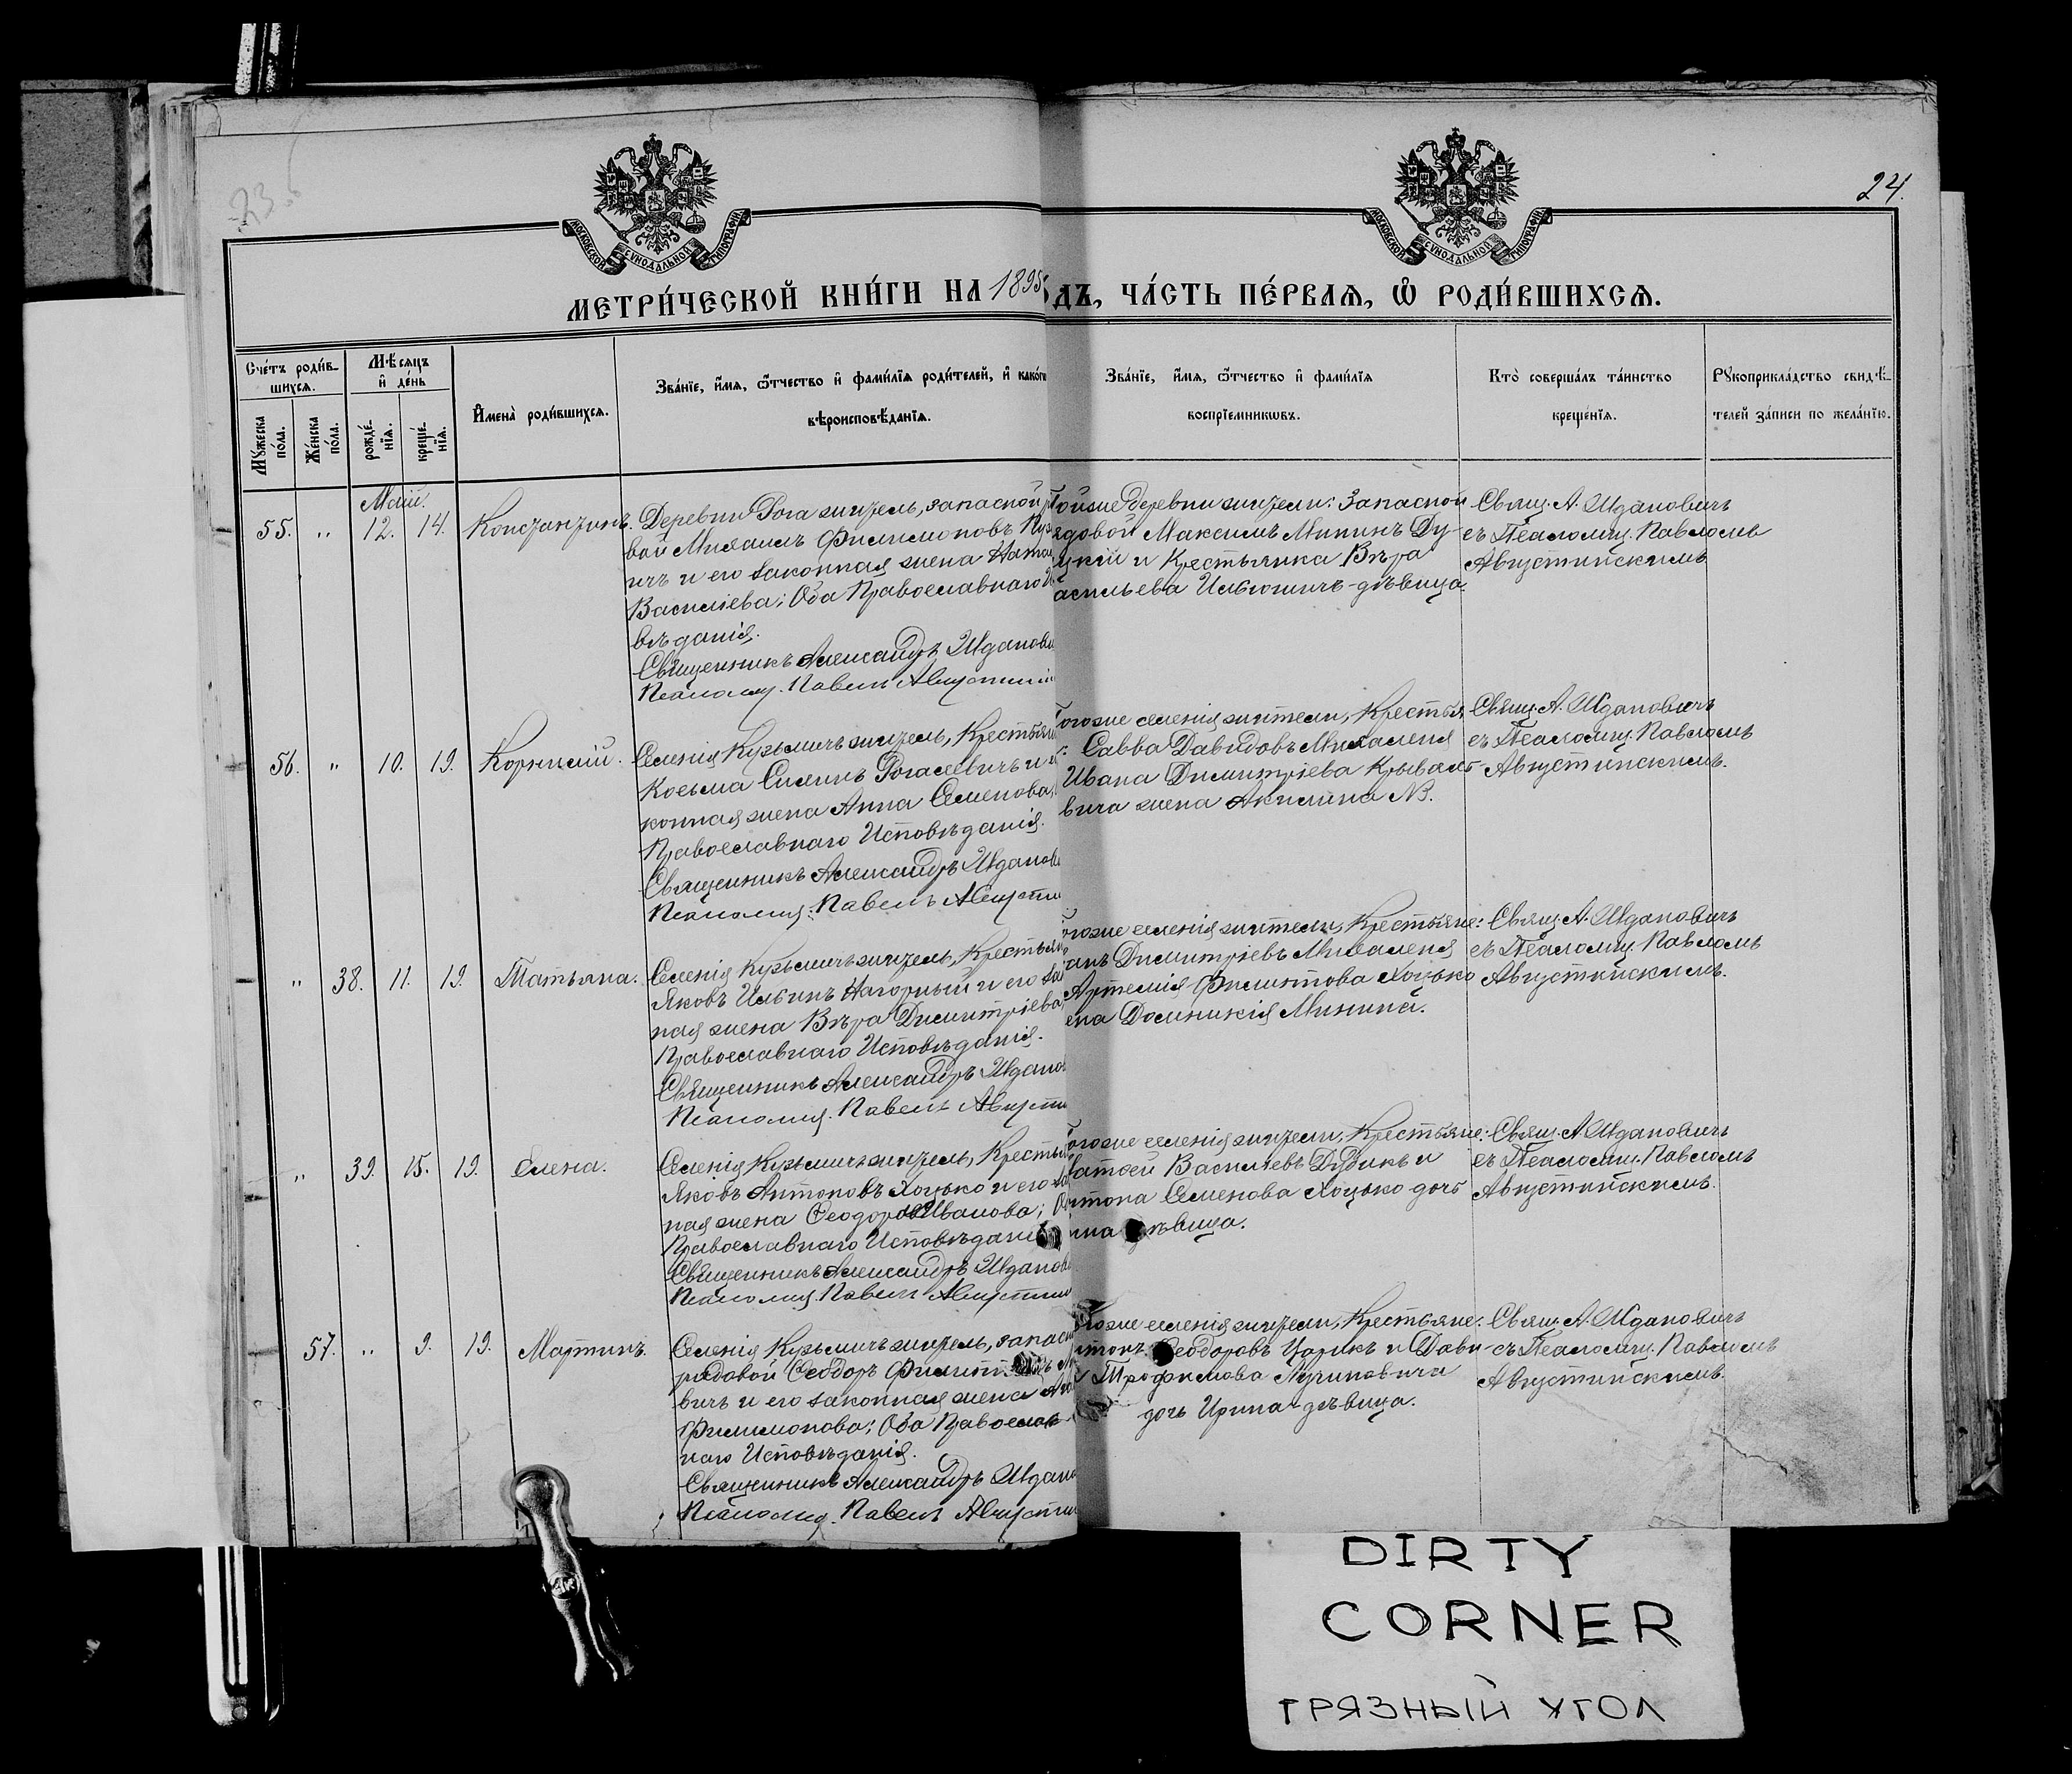 23.
24.
МОСКОВСКОЙ СУНОДАЛЬНОЙ ТИПОГРАФІИ
МОСКОВСКОЙ СУНОДАЛЬНОЙ ТИПОГРАФІИ
МЕТРИ́ЧЕСКОЙ КНИ́ГИ НА 1895
ДЪ, ЧА́СТЬ ПЕ́РВАѦ, Ѽ РОДИ́ВШИХСѦ.
Сче́тъ роди́в-
шихсѧ.
Мѣ́сѧцъ
и҆ де́нь
Мꙋ́жеска по́ла.
Же́нска по́ла.
рожде́-нїѧ.
креще́-нїѧ.
И҆мена̀ роди́вшихсѧ.
Зва́нїе, и҆́мѧ, ѻ҆́тчество и҆ фами́лїѧ роди́телей, и҆ како́гѡ
вѣроисповѣ́данїѧ.
Зва́нїе, и҆́мѧ, ѻ҆́тчество и҆ фами́лїѧ
воспрїе́мникѡвъ.
Кто̀ соверша́лъ та́инство
креще́нїѧ.
Рꙋкоприкла́дство свидѣ́-
телей за́писи по жела́нїю.
Маій.
55. " 12. 14. Константинъ.
Деревни Рога житель, запасной
вой Михаилъ Филимоновъ
ичъ и его законная жена
Василіева; Оба Православнаго
вѣданія.
Священникъ Александръ Жданови
Псаломщ. Павелъ Августин
тойже деревни жители: Запасной
ядовой Максимъ Мининъ Ду-
цкій и Крестьянка Вѣра
асильева Ильюшичъ-дѣвица.
Свящ. А. Ждановичъ
съ Псаломщ. Павломъ
Августинскимъ
56. " 10. 19. Корнилій.
Селенія Кузьмичъ житель, Крестьян
Косьма Силинъ Рогалевичъ и
конная жена Анна Семенова,
Православнаго Исповѣданія.
Священникъ Александръ Жданов
Псаломщ: Павелъ Августи
огоже селенія жители, Крестья
Савва Давидовъ Михаленя
Ивана Димитріева Крывалъ-
вича жена Акилина
Свящ. А. Ждановичъ
съ Псаломщ. Павломъ
Августинскимъ.
" 38. 11. 19. Татьяна.
Селенія Кузьмичъ житель, Крестьян
Яковъ Ильинъ Нагорный и его за
ная жена Вѣра Димитріева,
Православнаго Исповѣданія.
Священникъ Александръ Ждано
Псаломщ. Павелъ Августи
огоже селенія жители, Крестьяне:
Димитріевъ Михаленя
Артемія Филиппова Хоцько
ена Доминикія Минина.
Свящ. А. Ждановичъ
съ Псаломщ. Павломъ
Августинскимъ.
" 39. 15. 19. Елена.
Селенія Кузьмичъ житель, Кресть
Яковъ Антоновъ Хоцько и его за
ная жена Ѳеодора Иванова; О
Православнаго Исповѣдані
Священникъ Александръ Жданов
Псаломщ. Павелъ Августин
огоже селенія жители, Крестьяне:
Василіевъ Дубикъ и
нтона Семенова Хоцько дочь
дѣвица.
Свящ. А. Ждановичъ
съ Псаломщ. Павломъ
Августинскимъ.
57. " 9. 19. Мартинъ.
Селенія Кузьмичъ житель, запасн
рядовой Ѳеодоръ
вичъ и его законная жена
Филимонова; Оба Православ
наго Исповѣданія.
Священникъ Александръ Ждан
Псаломщ. Павелъ Августин
огоже селенія жители, Крестьяне:
Ѳеодоровъ Царикъ и Дави-
Трофимова Лучиновича
дочь Ирина-дѣвица.
Свящ. А. Ждановичъ
съ Псаломщ. Павломъ
Августинскимъ.
DIRTY
CORNER
ГРЯЗНЫЙ УГОЛ